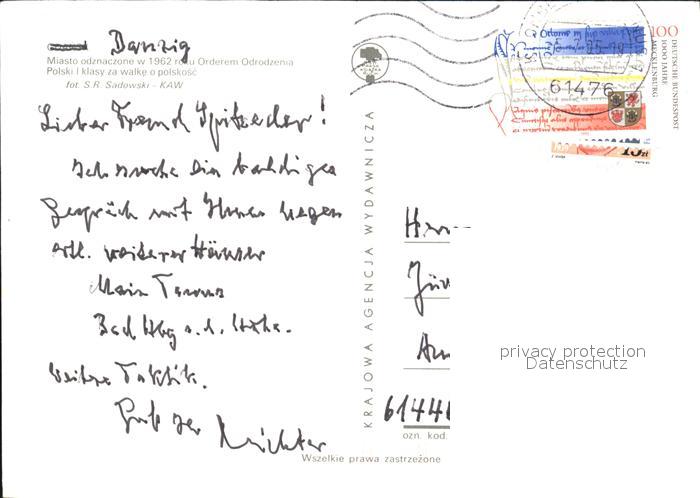 Danzig
Miasto odznaczone w 1962 roku Orderem Odrodzenia
Polski I klasy za walkę o polskość
fot. S.R. Sadowski - KAW
Lieber Freund Spitzeder!
Ich suche ein baldiges
Gespräch mit Ihnen wegen
evtl. weiterer Häuser
Main Taunus
Bad Hbg v. d. Höhe.
weitere Taktik.
Gruß Ihr Richter
KRAJOWA AGENCJA WYDAWNICZA
Wszelkie prawa zastrzeżone
100
1000 JAHRE
MECKLENBURG
DEUTSCHE BUNDESPOST
61476
15zł
Herrn
Jür
Am
61440
ozn. kod.
privacy protection
Datenschutz